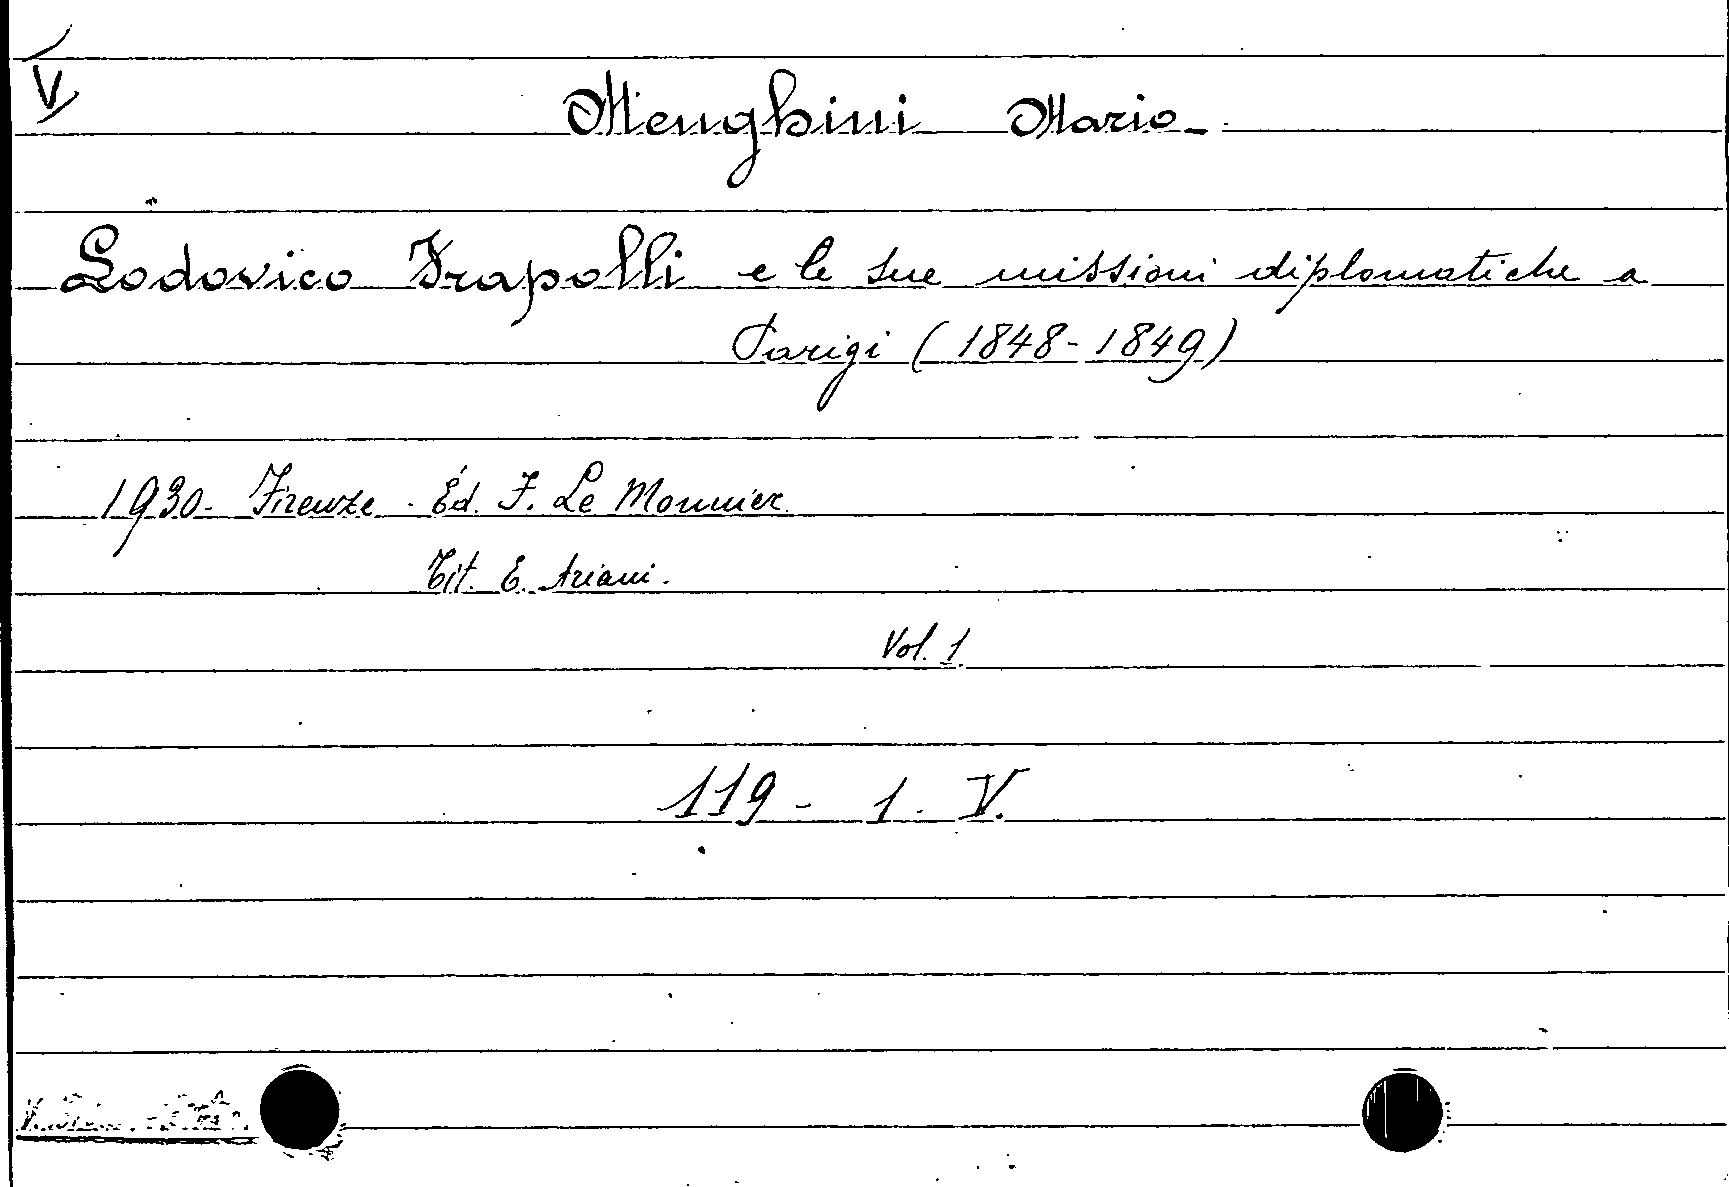 V
Menghini Mario -
Lodovico Frapolli e le sue missioni diplomatiche a
Parigi (1848-1849)
1930 - Firenze - Ed. F. Le Monnier
Tit. E. Ariani.
Vol. 1
119 - 1 - V.